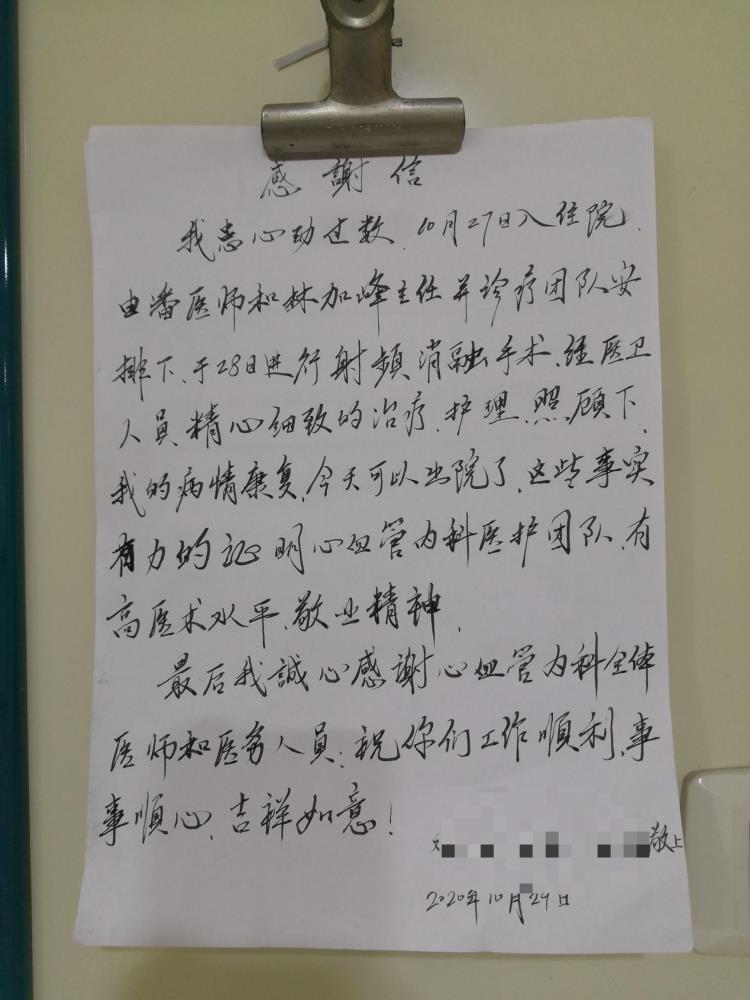 感謝信
我患心动过数、10月27日入住院、
由潘医师和林加峰主任并诊疗团队安
排下、于28日进行射频消融手术、经医卫
人員精心细致的治疗、护理、照顾下、
我的病情康复、今天可以出院了、这些事实
有力的证明心血管内科医护团队、有
高医术水平、敬业精神、
最后我誠心感謝心血管内科全体
医师和医务人員、祝你们工作順利、事
事順心、吉祥如意！
敬上
2020年10月29日